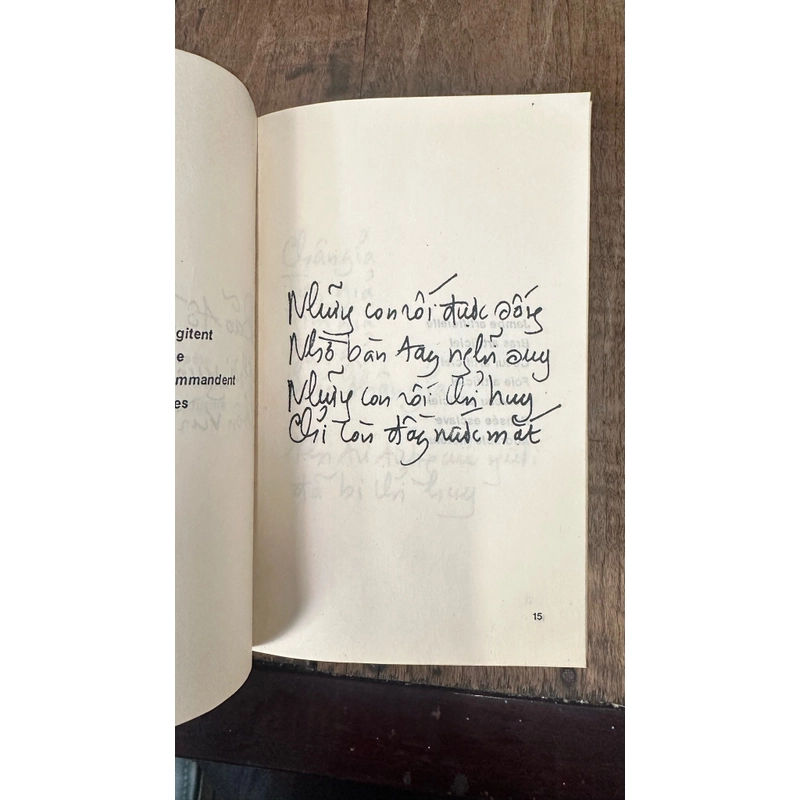 gitent
e
mmandent
es
Những con rối được sống
Nhờ bàn tay nghĩ suy
Những con rối chỉ huy
Chỉ còn đầy nước mắt
15